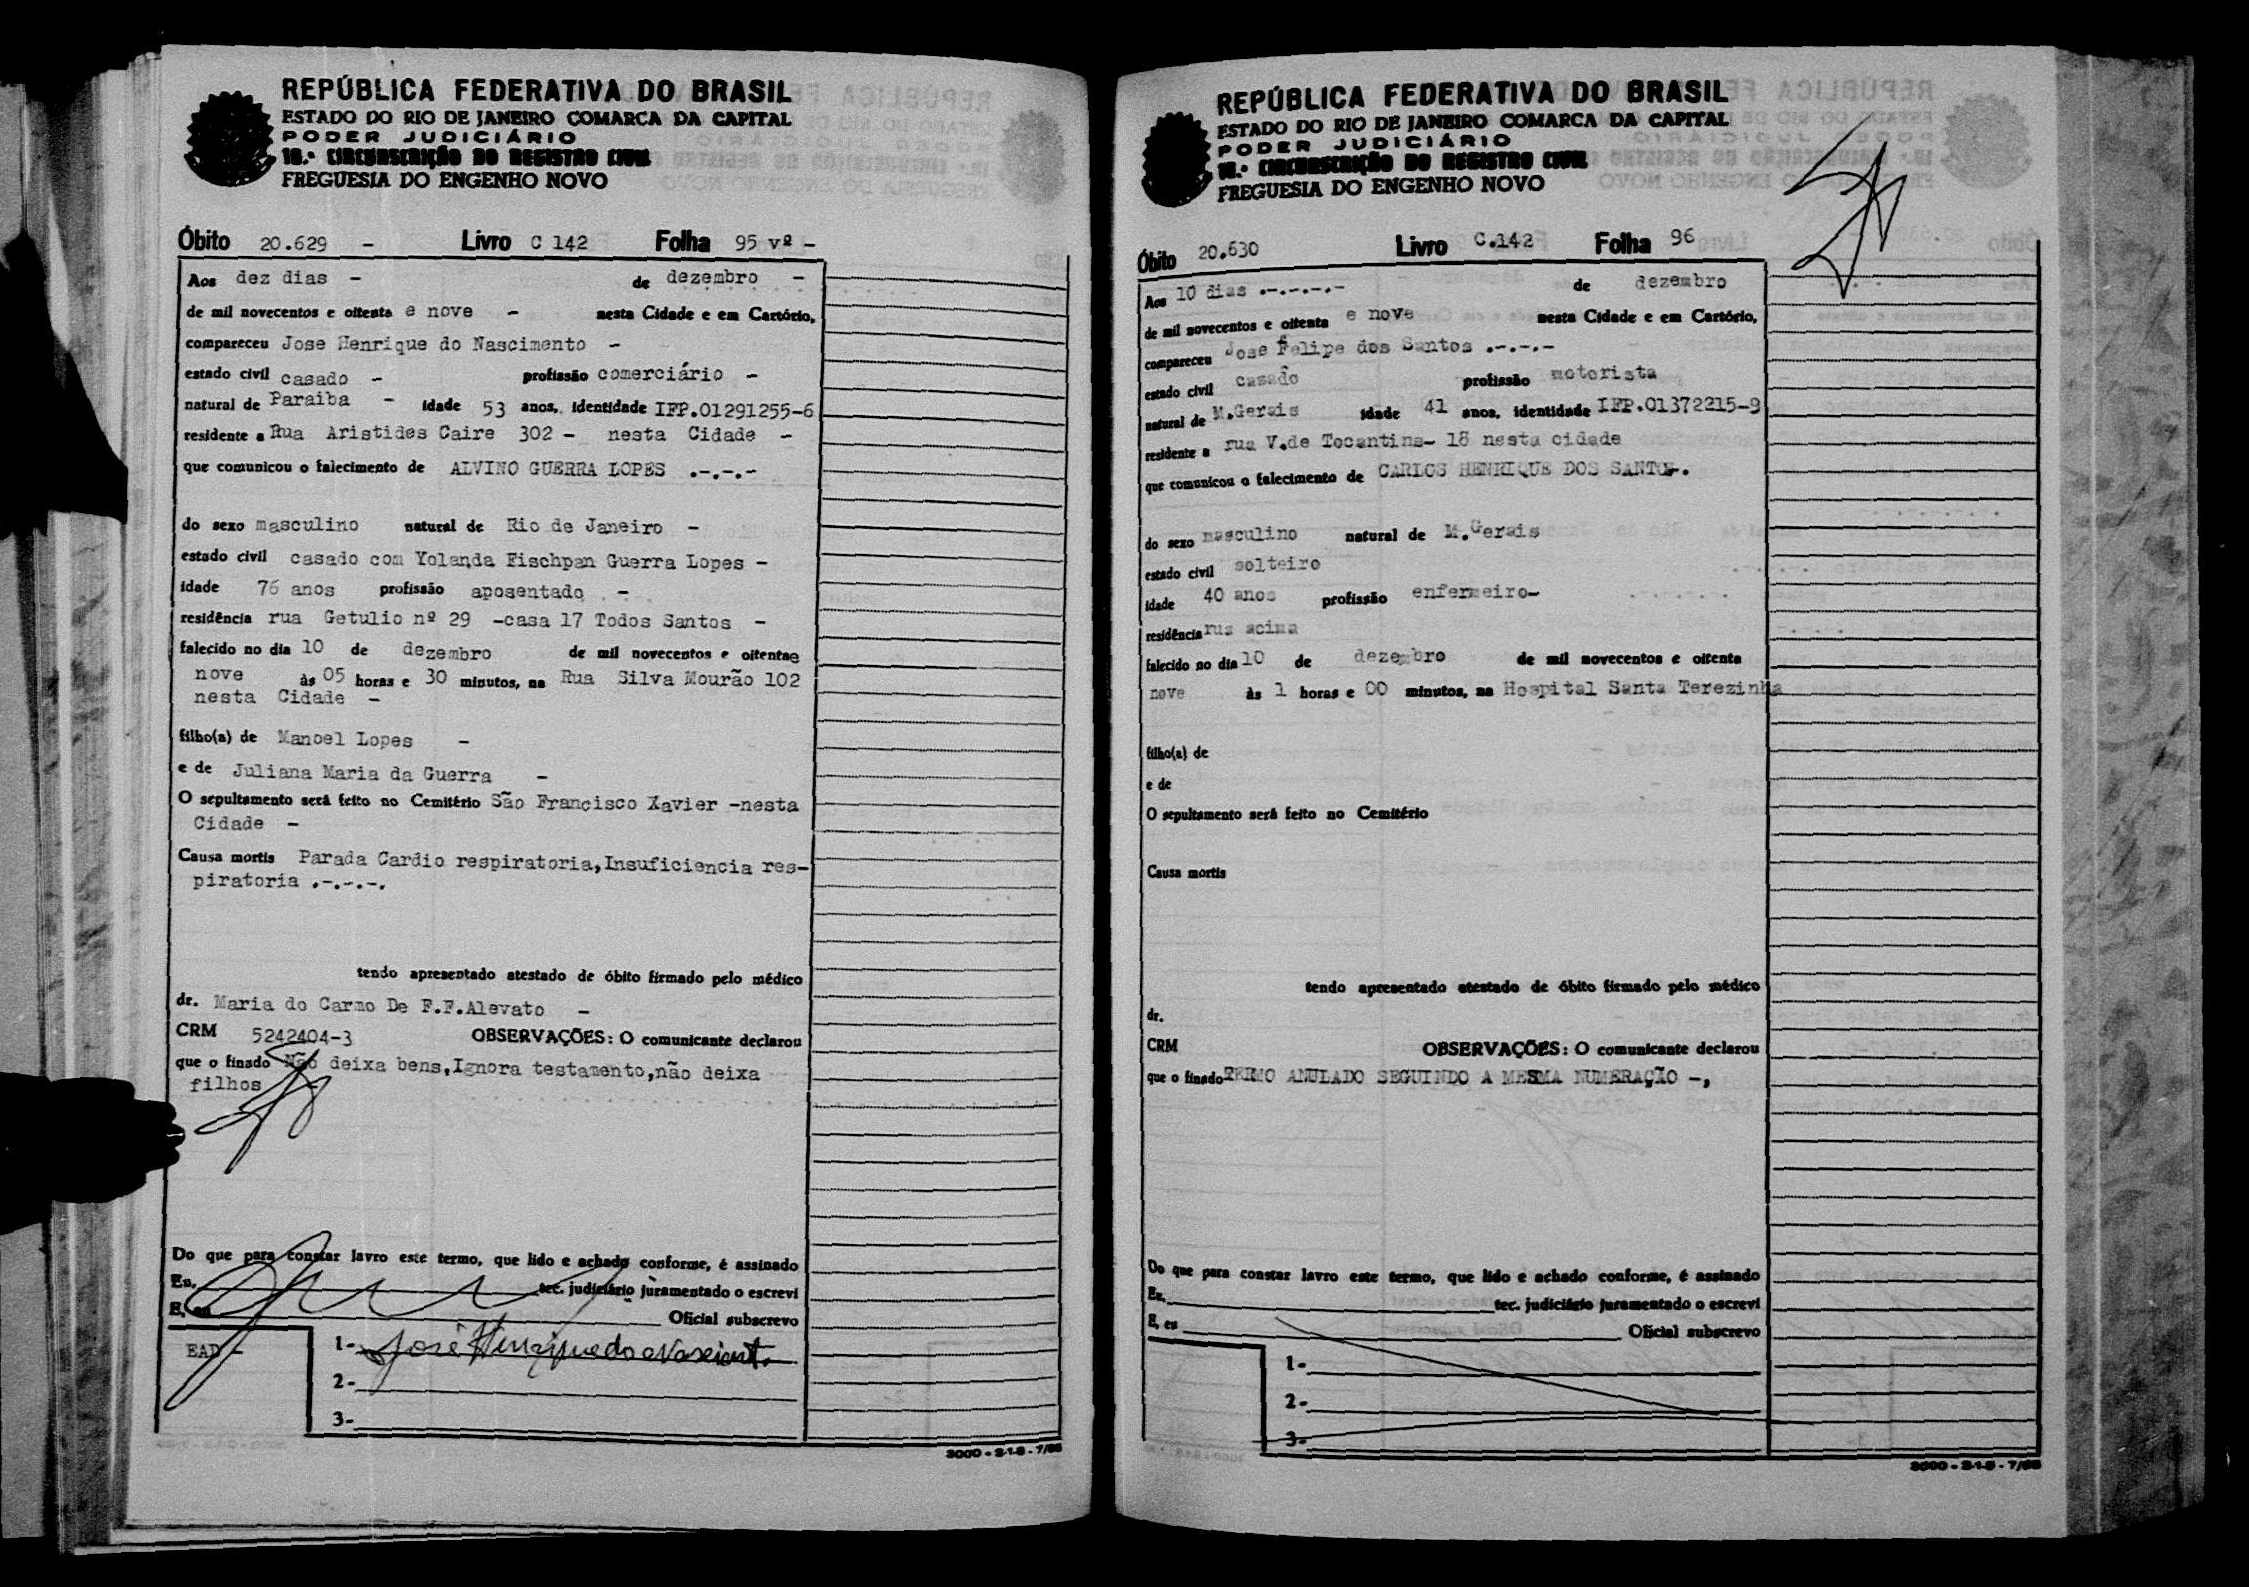 REPÚBLICA FEDERATIVA DO BRASIL
ESTADO DO RIO DE JANEIRO COMARCA DA CAPITAL
PODER JUDICIÁRIO
18.ª CIRCUNSCRIÇÃO DO REGISTRO CIVIL
FREGUESIA DO ENGENHO NOVO
Óbito 20.629 - Livro C 142 Folha 95 vº -
Aos dez dias - de dezembro -
de mil novecentos e oitenta e nove - nesta Cidade e em Cartório,
compareceu Jose Henrique do Nascimento -
estado civil casado - profissão comerciário -
natural de Paraiba - idade 53 anos, identidade IFP.01291255-6
residente a Rua Aristides Caire 302 - nesta Cidade -
que comunicou o falecimento de ALVINO GUERRA LOPES .-.-.-
do sexo masculino natural de Rio de Janeiro -
estado civil casado com Yolanda Fischpan Guerra Lopes -
idade 76 anos profissão aposentado . -
residência rua Getulio nº 29 -casa 17 Todos Santos -
falecido no dia 10 de dezembro de mil novecentos e oitenta e
nove às 05 horas e 30 minutos, na Rua Silva Mourão 102
nesta Cidade -
filho(a) de Manoel Lopes -
e de Juliana Maria da Guerra -
O sepultamento será feito no Cemitério São Francisco Xavier -nesta
Cidade -
Causa mortis Parada Cardio respiratoria,Insuficiencia res-
piratoria .-.-.-.
tendo apresentado atestado de óbito firmado pelo médico
dr. Maria do Carmo De F.F.Alevato -
CRM 5242404-3 OBSERVAÇÕES: O comunicante declarou
que o finado Não deixa bens,Ignora testamento,não deixa
filhos
Do que para constar lavro este termo, que lido e achado conforme, é assinado
Eu, tec. judiciário juramentado o escrevi
E, eu Oficial subscrevo
EAD -
1- José Henrique do Nasciment.
2-
3-
3000 - 2-1-8 - 7/88
REPÚBLICA FEDERATIVA DO BRASIL
ESTADO DO RIO DE JANEIRO COMARCA DA CAPITAL
PODER JUDICIÁRIO
18.ª CIRCUNSCRIÇÃO DO REGISTRO CIVIL
FREGUESIA DO ENGENHO NOVO
Óbito 20.630 Livro C.142 Folha 96
Aos 10 dias .-.-.-.- de dezembro
de mil novecentos e oitenta e nove nesta Cidade e em Cartório,
compareceu Jose Felipe dos Santos .-.-.-
estado civil casado profissão motorista
natural de M.Gerais idade 41 anos, identidade IFP.01372215-9
residente a rua V.de Tocantins- 18 nesta cidade
que comunicou o falecimento de CARLOS HENRIQUE DOS SANTOS-.
do sexo masculino natural de M.Gerais
estado civil solteiro
idade 40 anos profissão enfermeiro-
residência rua acima
falecido no dia 10 de dezembro de mil novecentos e oitenta
nove às 1 horas e 00 minutos, na Hospital Santa Terezinha
filho(a) de
e de
O sepultamento será feito no Cemitério
Causa mortis
tendo apresentado atestado de óbito firmado pelo médico
dr.
CRM OBSERVAÇÕES: O comunicante declarou
que o finado TERMO ANULADO SEGUINDO A MESMA NUMERAÇÃO -,
Do que para constar lavro este termo, que lido e achado conforme, é assinado
Eu, tec. judiciário juramentado o escrevi
E, eu Oficial subscrevo
1-
2-
3-